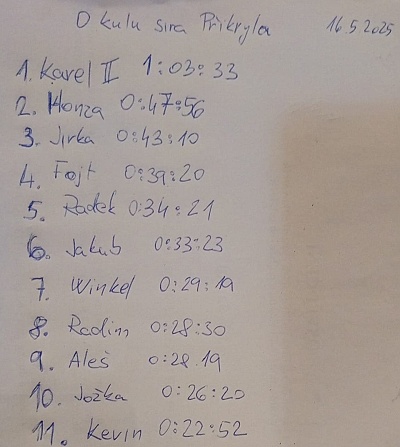 O kulu sira Přikryla 16.5.2025
1. Karel II 1:03:33
2. Honza 0:47:56
3. Jirka 0:43:10
4. Fojt 0:39:20
5. Radek 0:34:21
6. Jakub 0:33:23
7. Winkel 0:29:19
8. Radim 0:28:30
9. Aleš 0:28.19
10. Jožka 0:26:20
11. Kevin 0:22:52